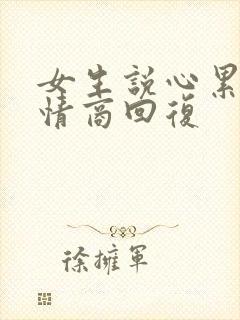 女生説心累
情商回復
徐擁軍